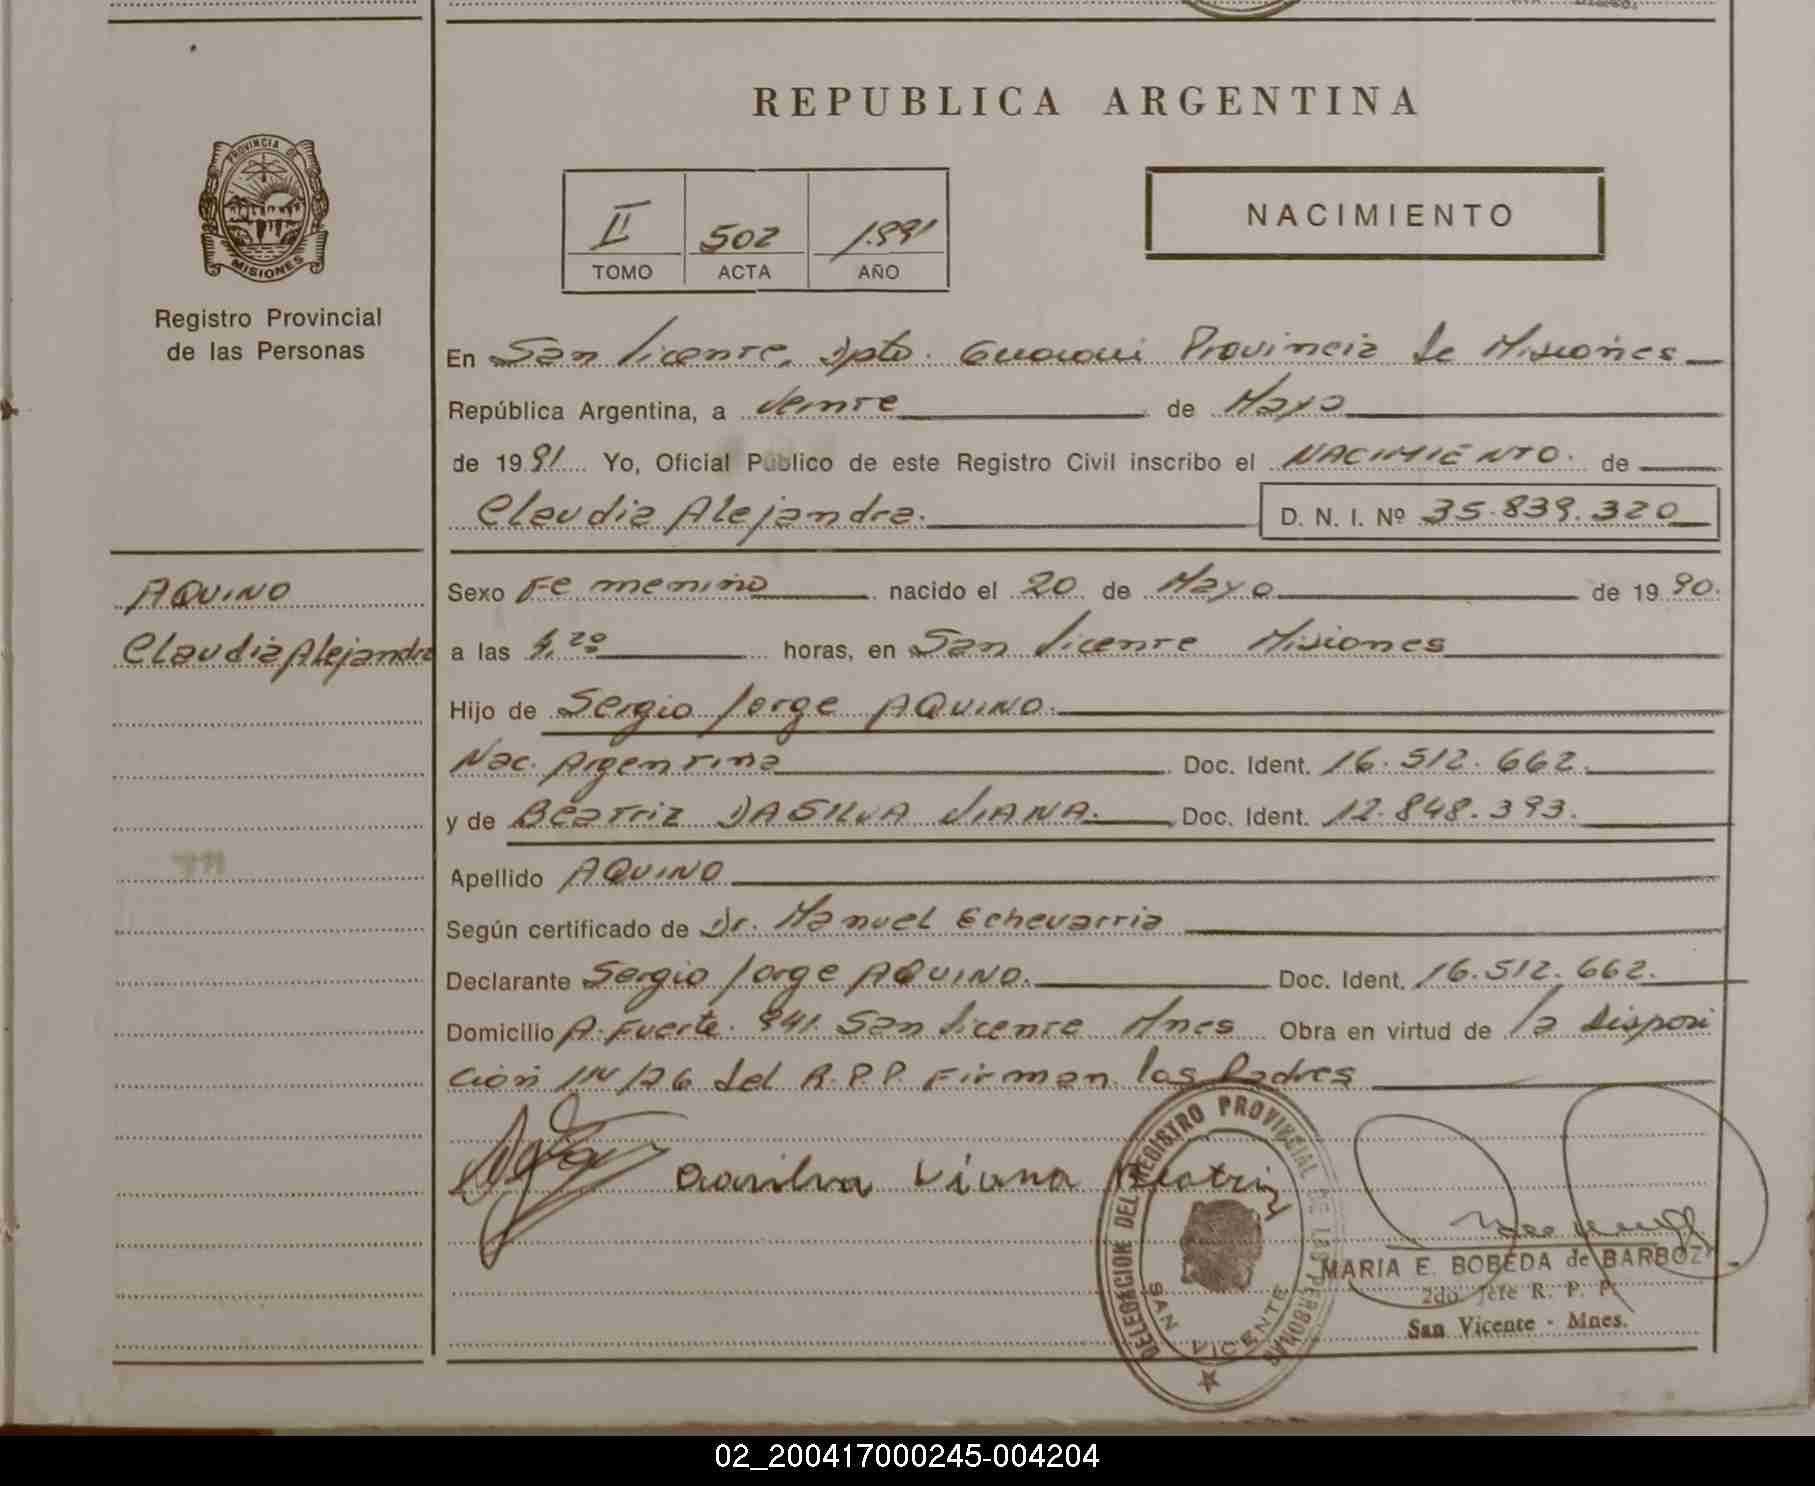 PROVINCIA DE
MISIONES
Registro Provincial
de las Personas
REPUBLICA ARGENTINA
II 502 1.991
TOMO ACTA AÑO
NACIMIENTO
En San Vicente, Dpto. Guarani Provincia de Misiones
República Argentina, a veinte de Mayo
de 1991 Yo, Oficial Público de este Registro Civil inscribo el NACIMIENTO. de
Claudia Alejandra. D. N. I. Nº 35.839.320
AQUINO
Claudia Alejandra
Sexo Femenino nacido el 20 de Mayo de 1990.
a las 4,20 horas, en San Vicente Misiones
Hijo de Sergio Jorge AQUINO.
Nac. Argentina Doc. Ident. 16.512.662.
y de Beatriz DASILVA VIANA. Doc. Ident. 12.848.393.
Apellido AQUINO
Según certificado de Dr. Manuel Echevarria
Declarante Sergio Jorge AQUINO. Doc. Ident. 16.512.662.
Domicilio A. Fuerte. 941. San Vicente Mnes Obra en virtud de la disposi
ción 114/26 del R.P.P. Firman los Padres
Dasilva Viana Beatriz
DELEGACION DEL REGISTRO PROVINCIAL DE LAS PERSONAS
SAN VICENTE
MARIA E. BOBEDA de BARBOZ
2do Jefe R. P. P.
San Vicente - Mnes.
02_200417000245-004204